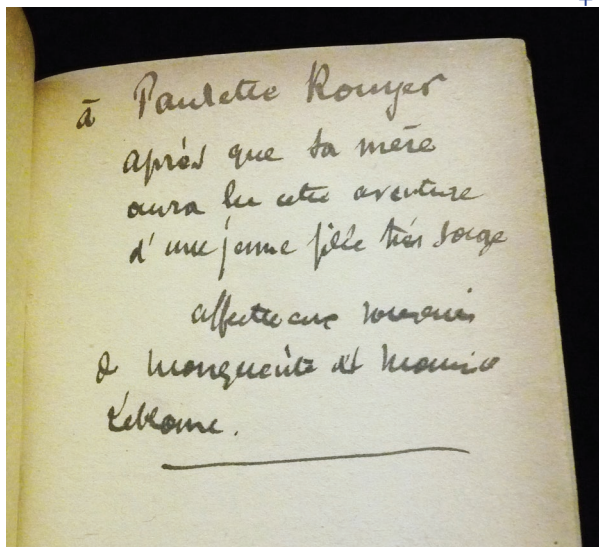 à Paulette Rouyer
après que sa mère
aura lu cette aventure
d'une jeune fille très sage
affectueux souvenir
de Marguerite et Maurice
Leblanc.